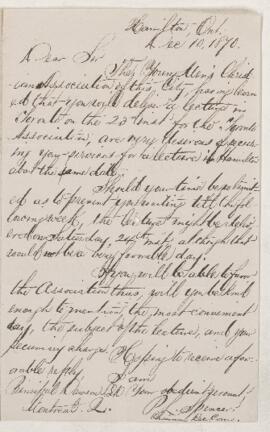 Hamilton, Ont.
Dec 10, 1890.
Dear Sir
The Young Men's Christ-
ian Association of this City, having learn-
ed that you will deliver a lecture in
Toronto on the 23 inst for the Toronto
Association, are very desirous of secur-
ing your services for a lecture in Hamilton
about the same date.
Should your time be so limit-
ed as to prevent your waiting till the fol-
lowing week, the lecture might be deliv-
ered on Saturday, 24th inst, although that
would not be a very favorable day.
If you will be able to favor
the Association thus, will you be kind
enough to mention, the most convenient
day, the subject of the lecture, and your
pecuniary charge. Hoping to receive a favor-
able reply
I am
Principal Dawson Your obedient servant,
Montreal. Q. Spencer
Lec Com.